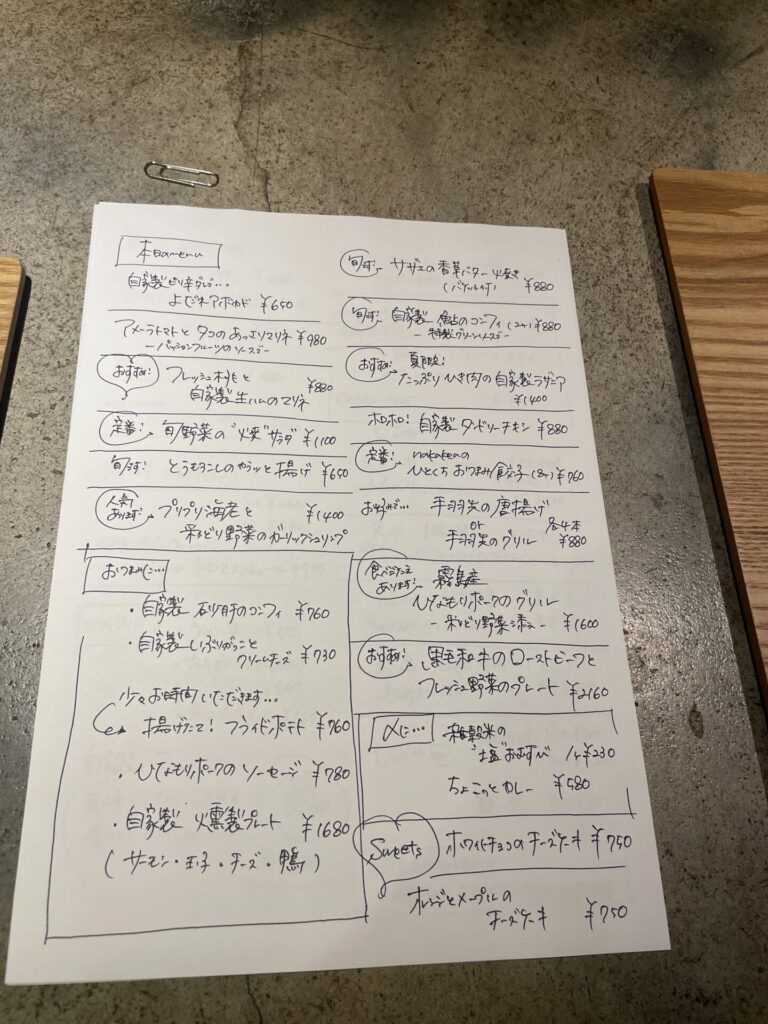 本日のmenu
自家製ピリ辛ダレで…
よだれアボカド ¥650
アメーラトマトと タコのあっさりマリネ ¥980
ーパッションフルーツのソースでー
おすすめ! フレッシュ桃と ¥880
自家製生ハムのマリネ
定番! 旬野菜の"焼き"サラダ ¥1100
旬です! とうもろこしのカラッと揚げ ¥650
人気あります! プリプリ海老と ¥1400
彩どり野菜のガーリックシュリンプ
おつまみに…
・自家製 砂肝のコンフィ ¥760
・自家製いぶりがっこと
クリームチーズ ¥730
少々お時間いただきます…
揚げたて! フライドポテト ¥760
・ひなもりポークの ソーセージ ¥780
・自家製 燻製プレート ¥1680
(サーモン・玉子・チーズ・鴨)
旬です! サザエの香草バター焼き
(バゲット付) ¥880
旬です! 自家製 鮎のコンフィ (2ヶ) ¥880
ー特製グリーンソースでー
おすすめ! 夏限定!
たっぷりひき肉の自家製ラザニア
¥1400
ホロホロ! 自家製タンドリーチキン ¥880
定番! nakaken
ひとくちおつまみ餃子(8ヶ) ¥760
お好みで… 手羽先の唐揚げ
or 各4本
手羽先のグリル ¥880
食べごたえあります! 霧島産
ひなもりポークのグリル
ー彩どり野菜添えー ¥1600
おすすめ! 黒毛和牛のローストビーフと
フレッシュ野菜のプレート ¥2160
〆に… 雑穀米の
"塩"おむすび 1ヶ¥230
ちょこっとカレー ¥580
Sweets ホワイトチョコのチーズケーキ ¥750
オレンジとメープルの
チーズケーキ ¥750